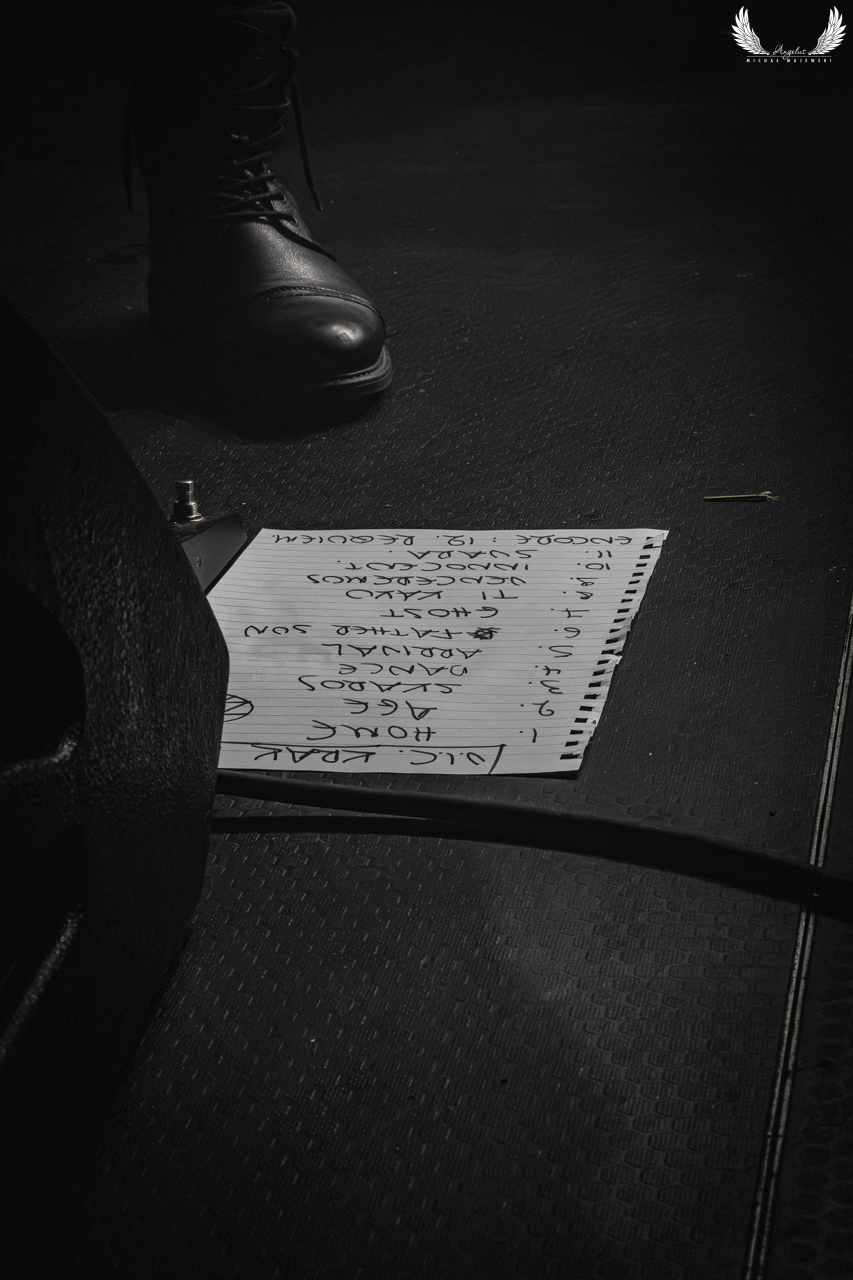 Angelus
MICHAŁ MAJEWSKI
V.I.C. KRAK
1. HOME
2. AGE
3.
4. DANCE
5. ARRIVAL
6. FATHER SON
7. GHOST
8. TI KAKO
9. VENCEREMOS
10. INNOCENT
11.
ENCORE : 12. REQUIEM